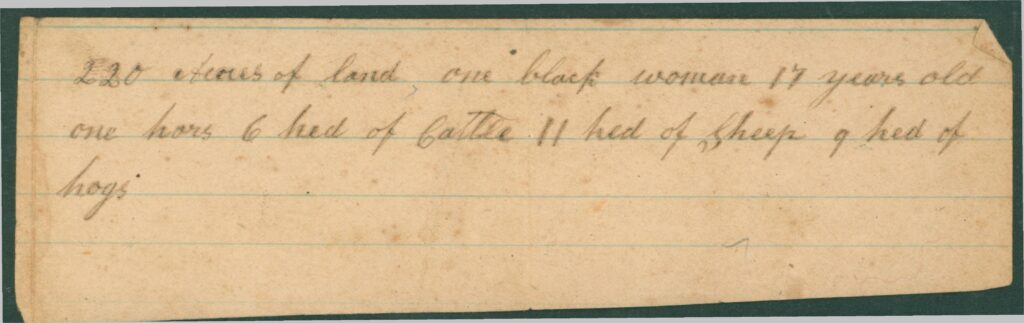 220 Acres of land one black woman 17 years old
one hors 6 hed of Cattle 11 hed of Sheep 9 hed of
hogs